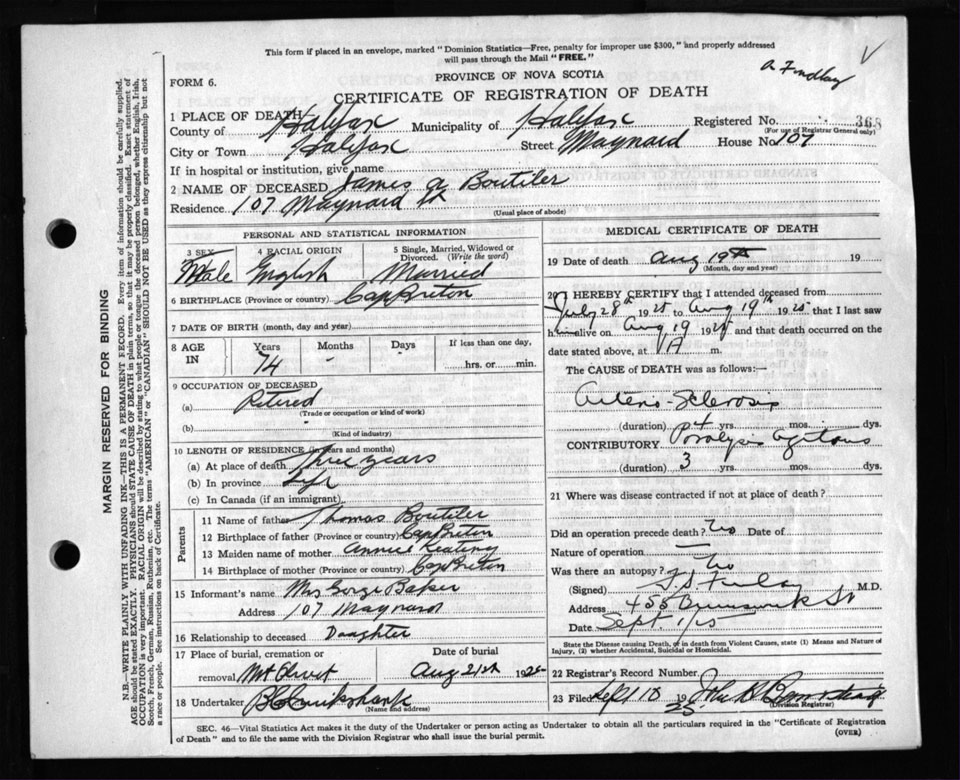 This form if placed in an envelope, marked "Dominion Statistics—Free, penalty for improper use $300," and properly addressed
will pass through the Mail "FREE."
A Findlay
PROVINCE OF NOVA SCOTIA
FORM 6.
CERTIFICATE OF REGISTRATION OF DEATH
1 PLACE OF DEATH
County of Halifax Municipality of Halifax Registered No. 368
(For use of Registrar General only)
City or Town Halifax Street Maynard House No. 107
If in hospital or institution, give name
2 NAME OF DECEASED James A Boutiler
Residence 107 Maynard St
(Usual place of abode)
PERSONAL AND STATISTICAL INFORMATION
3 SEX 4 RACIAL ORIGIN 5 Single, Married, Widowed or Divorced. (Write the word)
Male English Married
6 BIRTHPLACE (Province or country) Cap Breton
7 DATE OF BIRTH (month, day and year)
8 AGE IN Years Months Days If less than one day,
74 - - hrs. or min.
9 OCCUPATION OF DECEASED
(a) Retired
(Trade or occupation or kind of work)
(b)
(Kind of industry)
10 LENGTH OF RESIDENCE (in years and months)
(a) At place of death three years
(b) In province Life
(c) In Canada (if an immigrant)
Parents
11 Name of father Thomas Boutiler
12 Birthplace of father (Province or country) Cap Breton
13 Maiden name of mother Annie Keating
14 Birthplace of mother (Province or country) Cap Breton
15 Informant's name Mrs Gorge Baker
Address 107 Maynard
16 Relationship to deceased Daughter
17 Place of burial, cremation or removal Mt Olivet Date of burial Aug 21st 1925
18 Undertaker
(Name and address)
MEDICAL CERTIFICATE OF DEATH
19 Date of death Aug 19th 19
(Month, day and year)
20 I HEREBY CERTIFY that I attended deceased from
July 28th 1925 to Aug 19th 1925 that I last saw
him alive on Aug 19 1925 and that death occurred on the
date stated above, at A m.
The CAUSE of DEATH was as follows:—
Arterio-Sclerosis
(duration) 4 yrs. mos. dys.
CONTRIBUTORY Paralysis Agitans
(duration) 3 yrs. mos. dys.
21 Where was disease contracted if not at place of death?
Did an operation precede death? No Date of
Nature of operation —
Was there an autopsy? No
(Signed) M.D.
Address 455 Brunswick St
Date Sept 1/25
State the Disease causing Death, or in death from Violent Causes, state (1) Means and Nature of
Injury, (2) whether Accidental, Suicidal or Homicidal.
22 Registrar's Record Number
23 Filed Sept 10 1925 John
(Division Registrar)
SEC. 46—Vital Statistics Act makes it the duty of the Undertaker or person acting as Undertaker to obtain all the particulars required in the "Certificate of Registration
of Death" and to file the same with the Division Registrar who shall issue the burial permit.
(OVER)
MARGIN RESERVED FOR BINDING
N.B.—WRITE PLAINLY WITH UNFADING INK—THIS IS A PERMANENT RECORD. Every item of information should be carefully supplied.
AGE should be stated EXACTLY. PHYSICIANS should STATE CAUSE OF DEATH in plain terms, so that it may be properly classified. Exact statement of
OCCUPATION is very important. RACIAL ORIGIN will be described by stating to what people or tongue the deceased person belonged, whether English, Irish,
Scotch, French, German, Russian, Ruthenian, etc. The terms "AMERICAN" or "CANADIAN" SHOULD NOT BE USED as they express citizenship but not
a race or people. See instructions on back of Certificate.